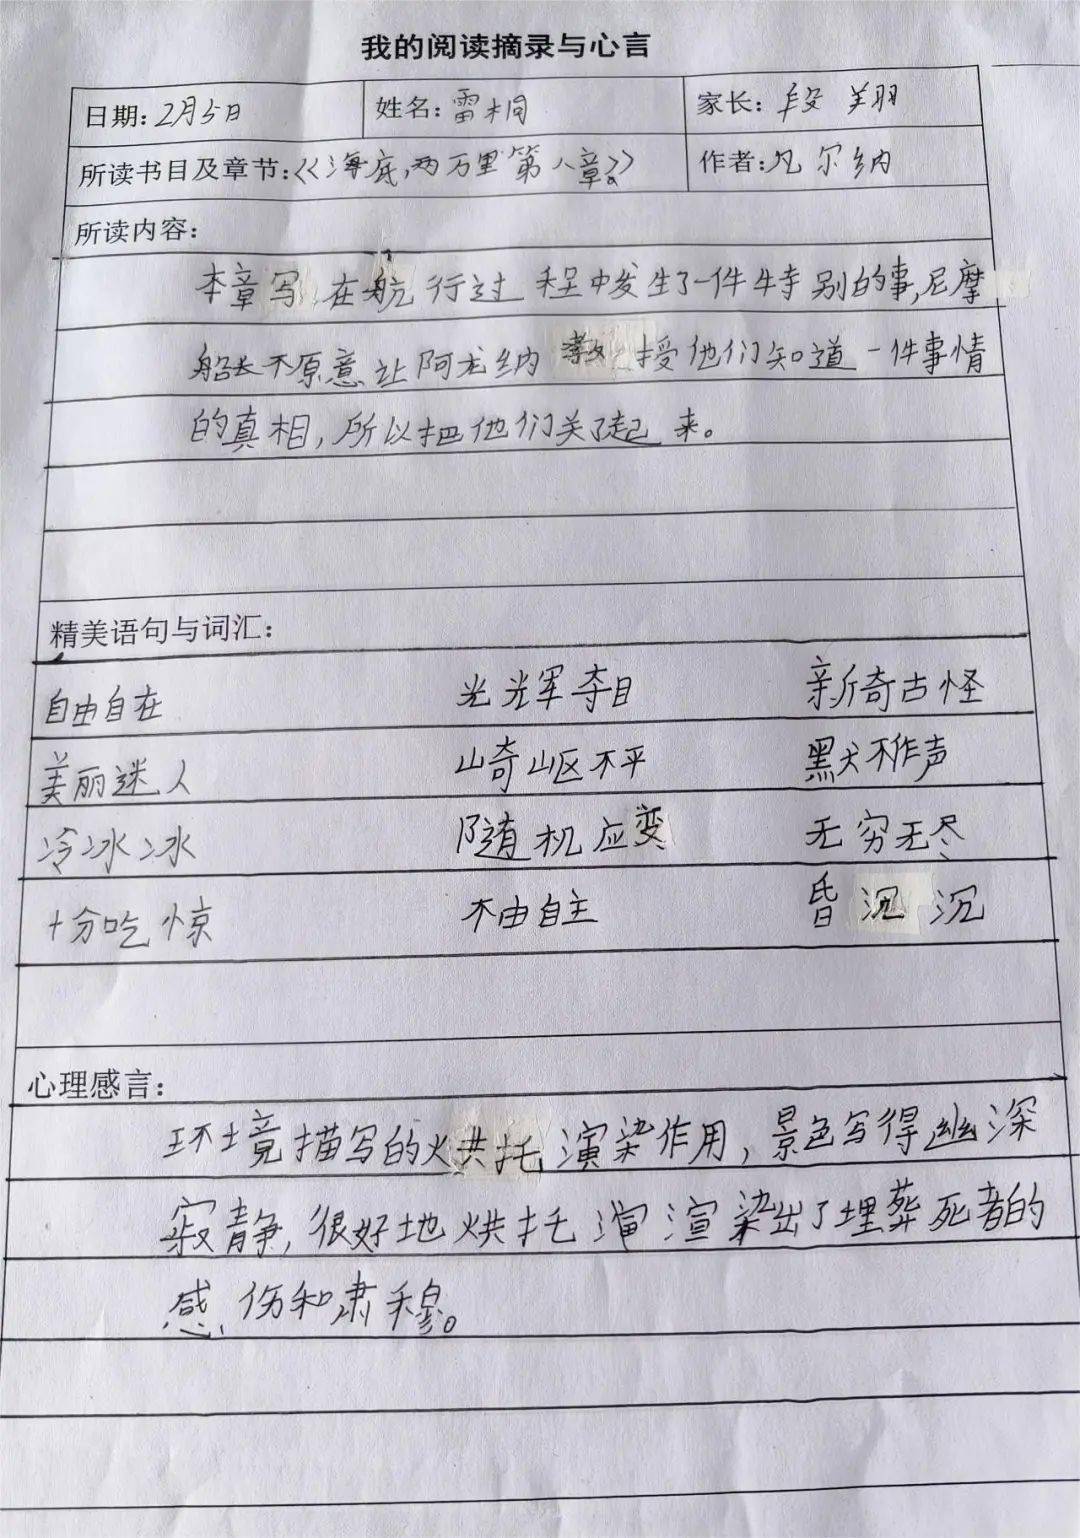 我的阅读摘录与心言
日期:2月5日 姓名:雷桐 家长:段翔
所读书目及章节:《海底,两万里第八章》 作者:凡尔纳
所读内容:
本章写,在航行过程中发生了一件特别的事,尼摩
船长不原意让阿龙纳教授他们知道一件事情
的真相,所以把他们关了起来。
精美语句与词汇:
自由自在 光辉夺目 新奇古怪
美丽迷人 崎岖不平 默不作声
冷冰冰 随机应变 无穷无尽
十分吃惊 不由自主 昏沉沉
心理感言:
环境描写的烘托渲染作用,景色写得幽深
寂静,很好地烘托渲染出了埋葬死者的
感伤和肃穆。